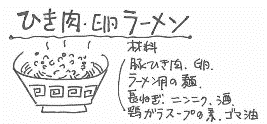 ひき肉・卵ラーメン
材料
豚ひき肉、卵、
ラーメン用の麺、
長ねぎ、ニンニク、酒、
鶏ガラスープの素、ゴマ油